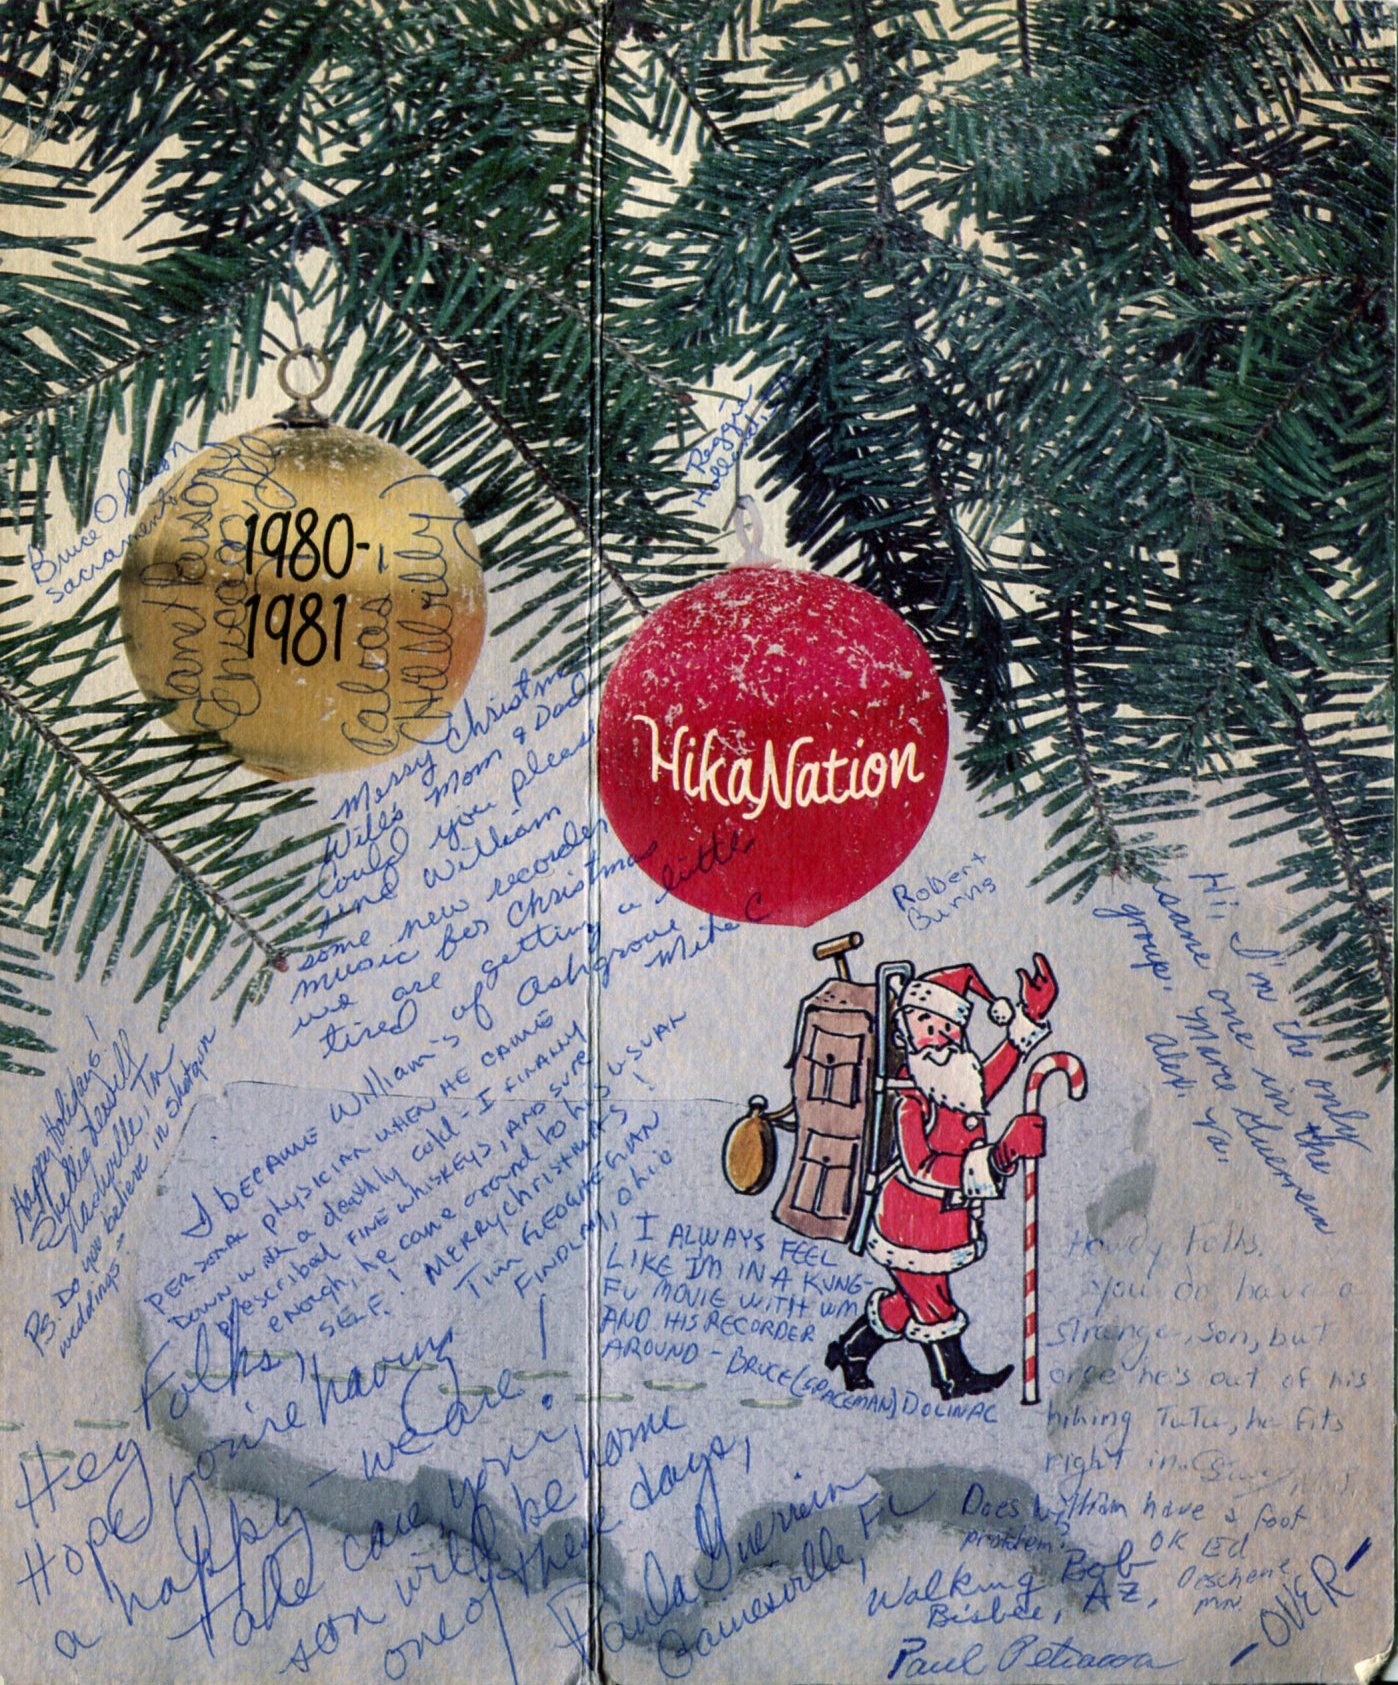 Bruce Ohlson
Sacramento
1980-
1981
Reggin
HikaNation
Merry Christmas
Will's Mom & Dad
Could you please
send William
some new recorder
music for Christmas
we are getting a little
tired of Ashgrove
Mike C
Robert
Burns
Hi, I'm the only
sane one in the
group.
Alex
Happy Holidays!
P.S. Do you believe in shotgun
weddings
I became William's
personal physician when he came
down with a deathly cold - I finally
prescribed fine whiskeys, and sure
enough, he came around to his usual
self! Merry Christmas!
Tim Geoghegan
Findlay, Ohio
I ALWAYS FEEL
LIKE I'M IN A KUNG-
FU MOVIE WITH WM
AND HIS RECORDER
AROUND - BRUCE (SPACEMAN) DOLINAC
Howdy Folks.
You do have a
strange, son, but
once he's out of his
hiking TuTu, he fits
right in.
Hey Folks,
Hope you're having
a happy - we are!
Take care, your
son will be home
one of these days,
Paula Guerrein
Gainesville, FL
Does William have a foot
problem?
OK Ed
Walking Bob
Bisbee, AZ.
Paul
-OVER-